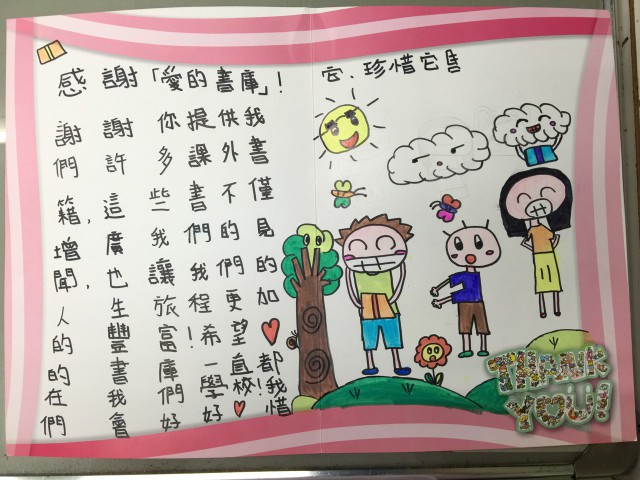 感謝「愛的書庫」!
謝謝你提供我
們許多課外書
籍,這些書不僅
增廣我們的見
聞,也讓我們的
人生旅程更加
的豐富!希望
的書庫一直都
在我們學校!我
們會好好惜
、珍惜它
THANK
YOU!